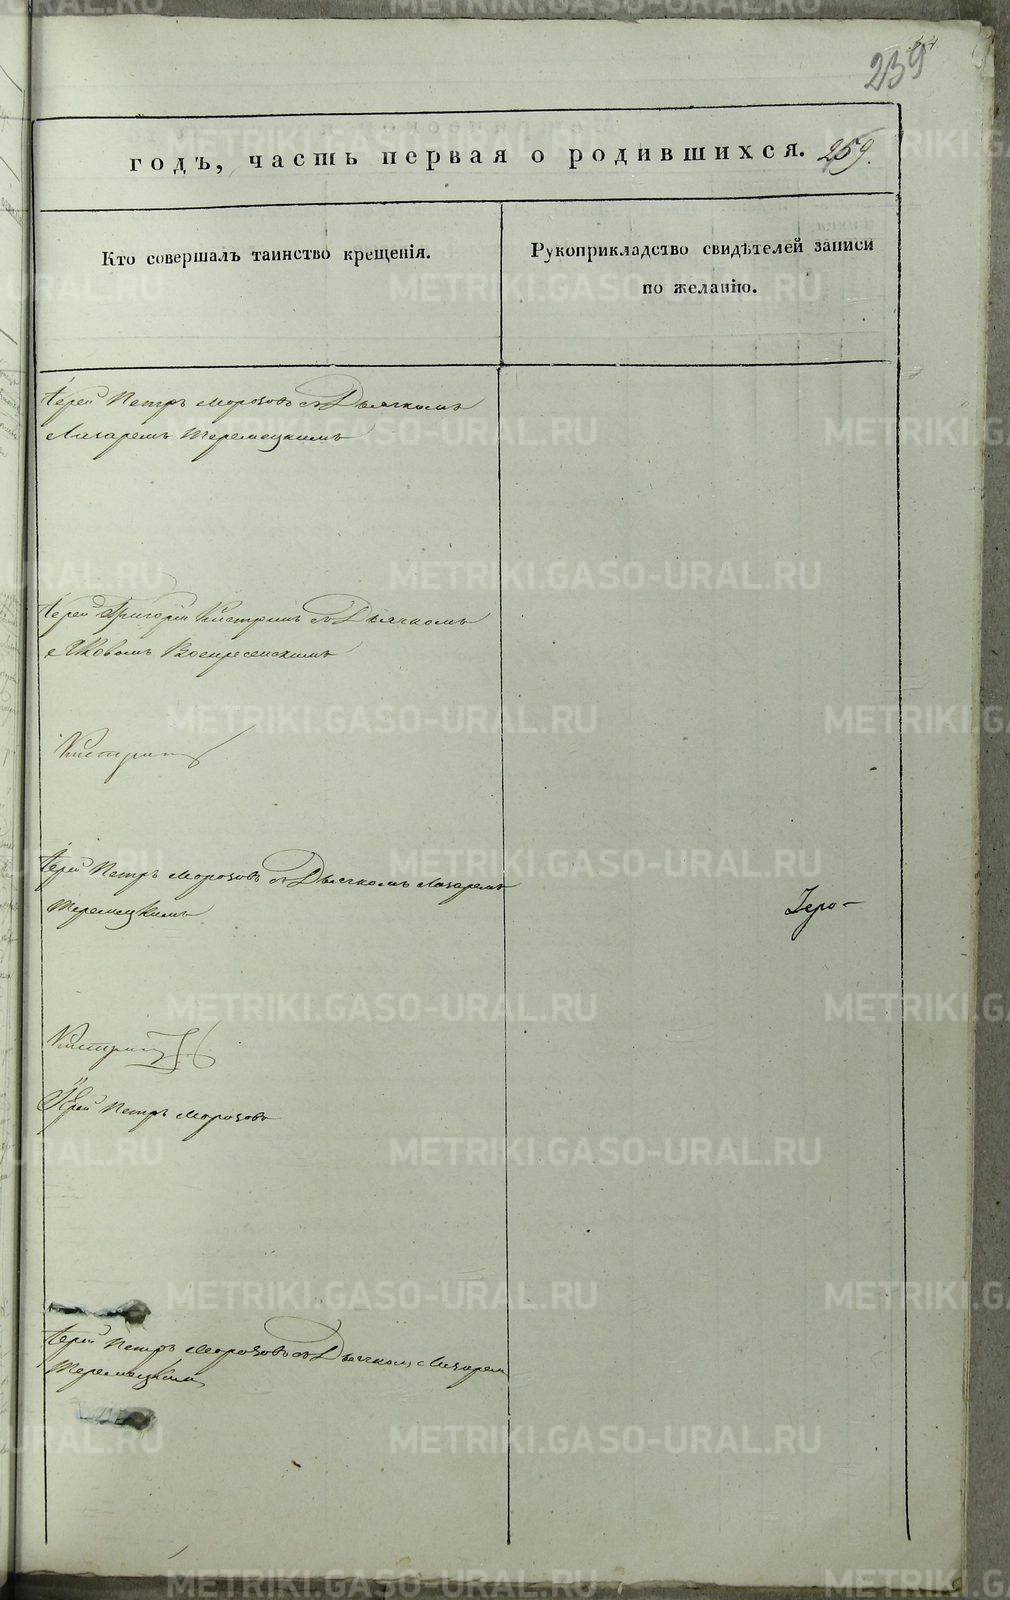 239
годъ, часть первая о родившихся. 259.
Кто совершалъ таинство крещенія.
Рукоприкладство свидѣтелей записи
по желанію.
Іерей Петръ Морозовъ съ Дьячкомъ
Лазаремъ Теремецкимъ
Іерей Григорій Кистринъ съ Дьячкомъ
Яковомъ Воскресенскимъ
Кистринъ
Іерей Петръ Морозовъ съ Дьячкомъ Лазаремъ
Теремецкимъ
Іеро-
Кистринъ
Іерей Петръ Морозовъ
Іерей Петръ Морозовъ съ Дьячкомъ Лазарем
Теремецким
METRIKI.GASO-URAL.RU